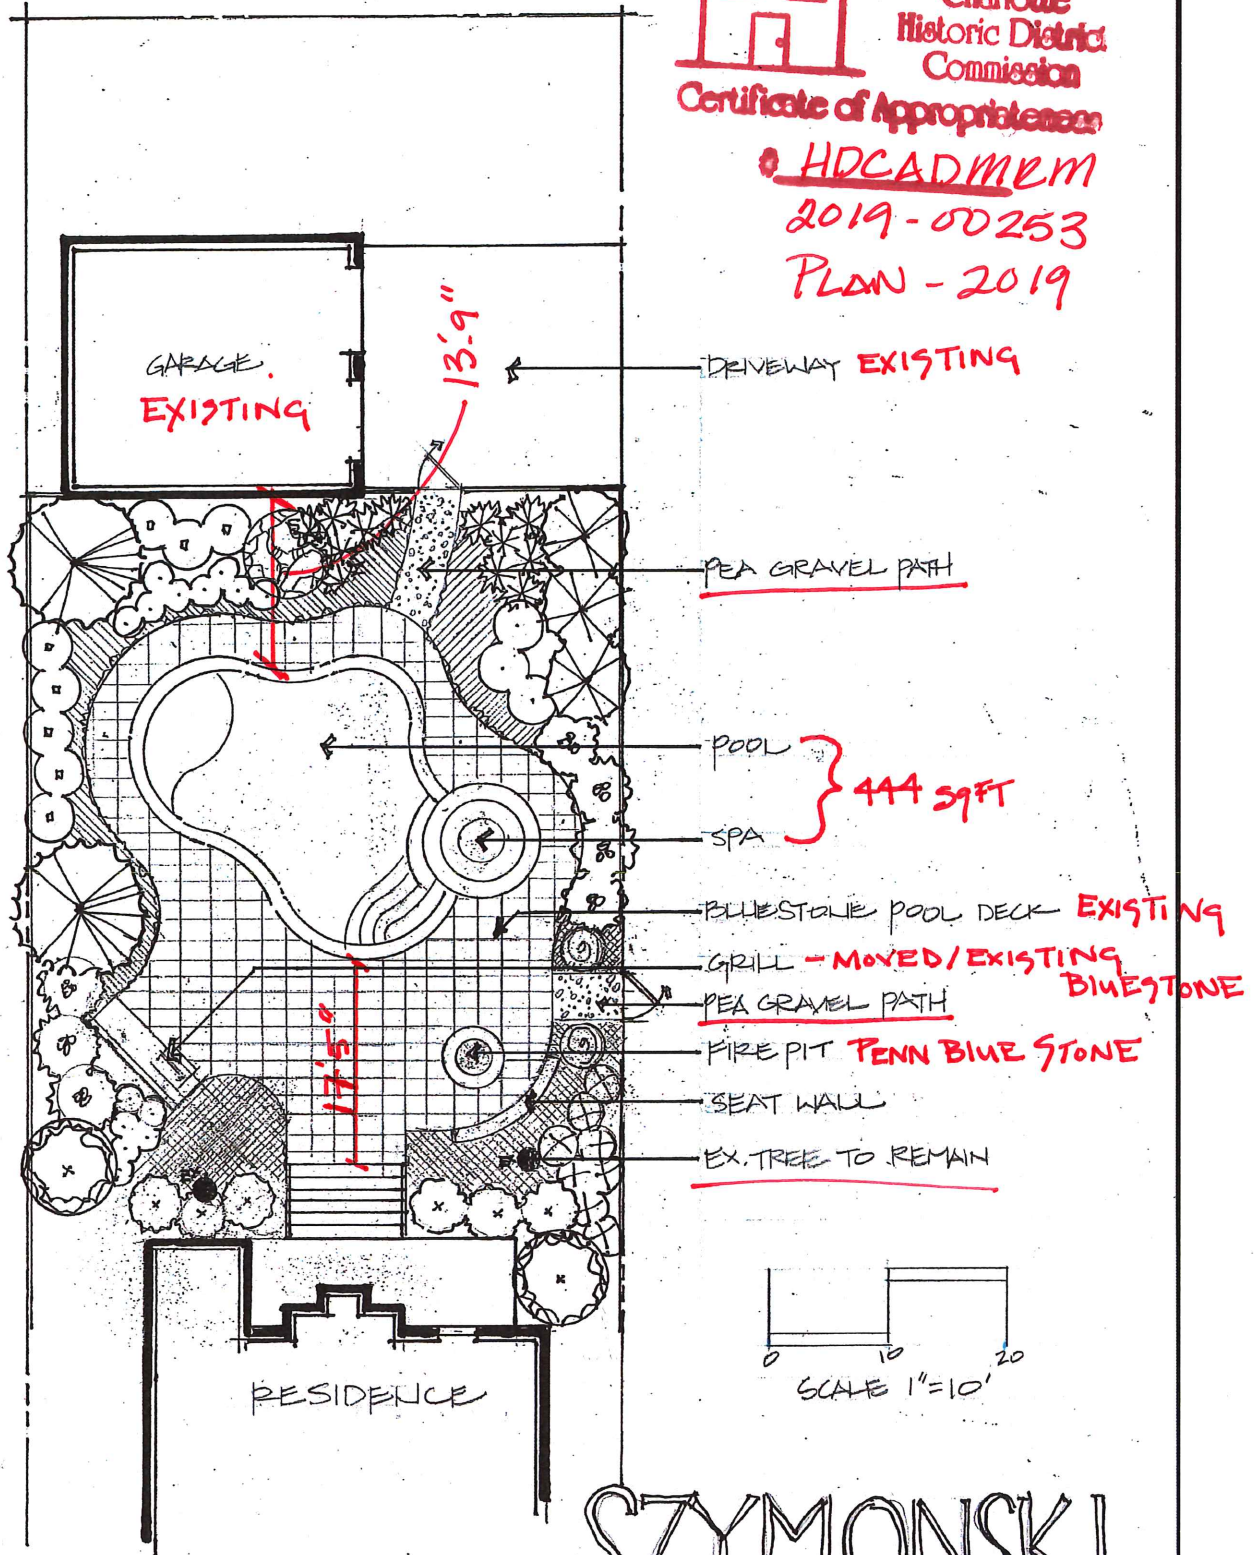 Charlotte
Historic District
Commission
Certificate of Appropriateness
HDCADMRM
2019-00253
PLAN - 2019
13'-9"
GARAGE.
EXISTING
DRIVEWAY EXISTING
PEA GRAVEL PATH
POOL
444 SQFT
SPA
BLUESTONE POOL DECK EXISTING
GRILL - MOVED/EXISTING
BLUESTONE
PEA GRAVEL PATH
17'5"
FIRE PIT PENN BLUE STONE
SEAT WALL
EX. TREE TO REMAIN
0 10 20
SCALE 1"=10'
RESIDENCE
SZYMONSKI